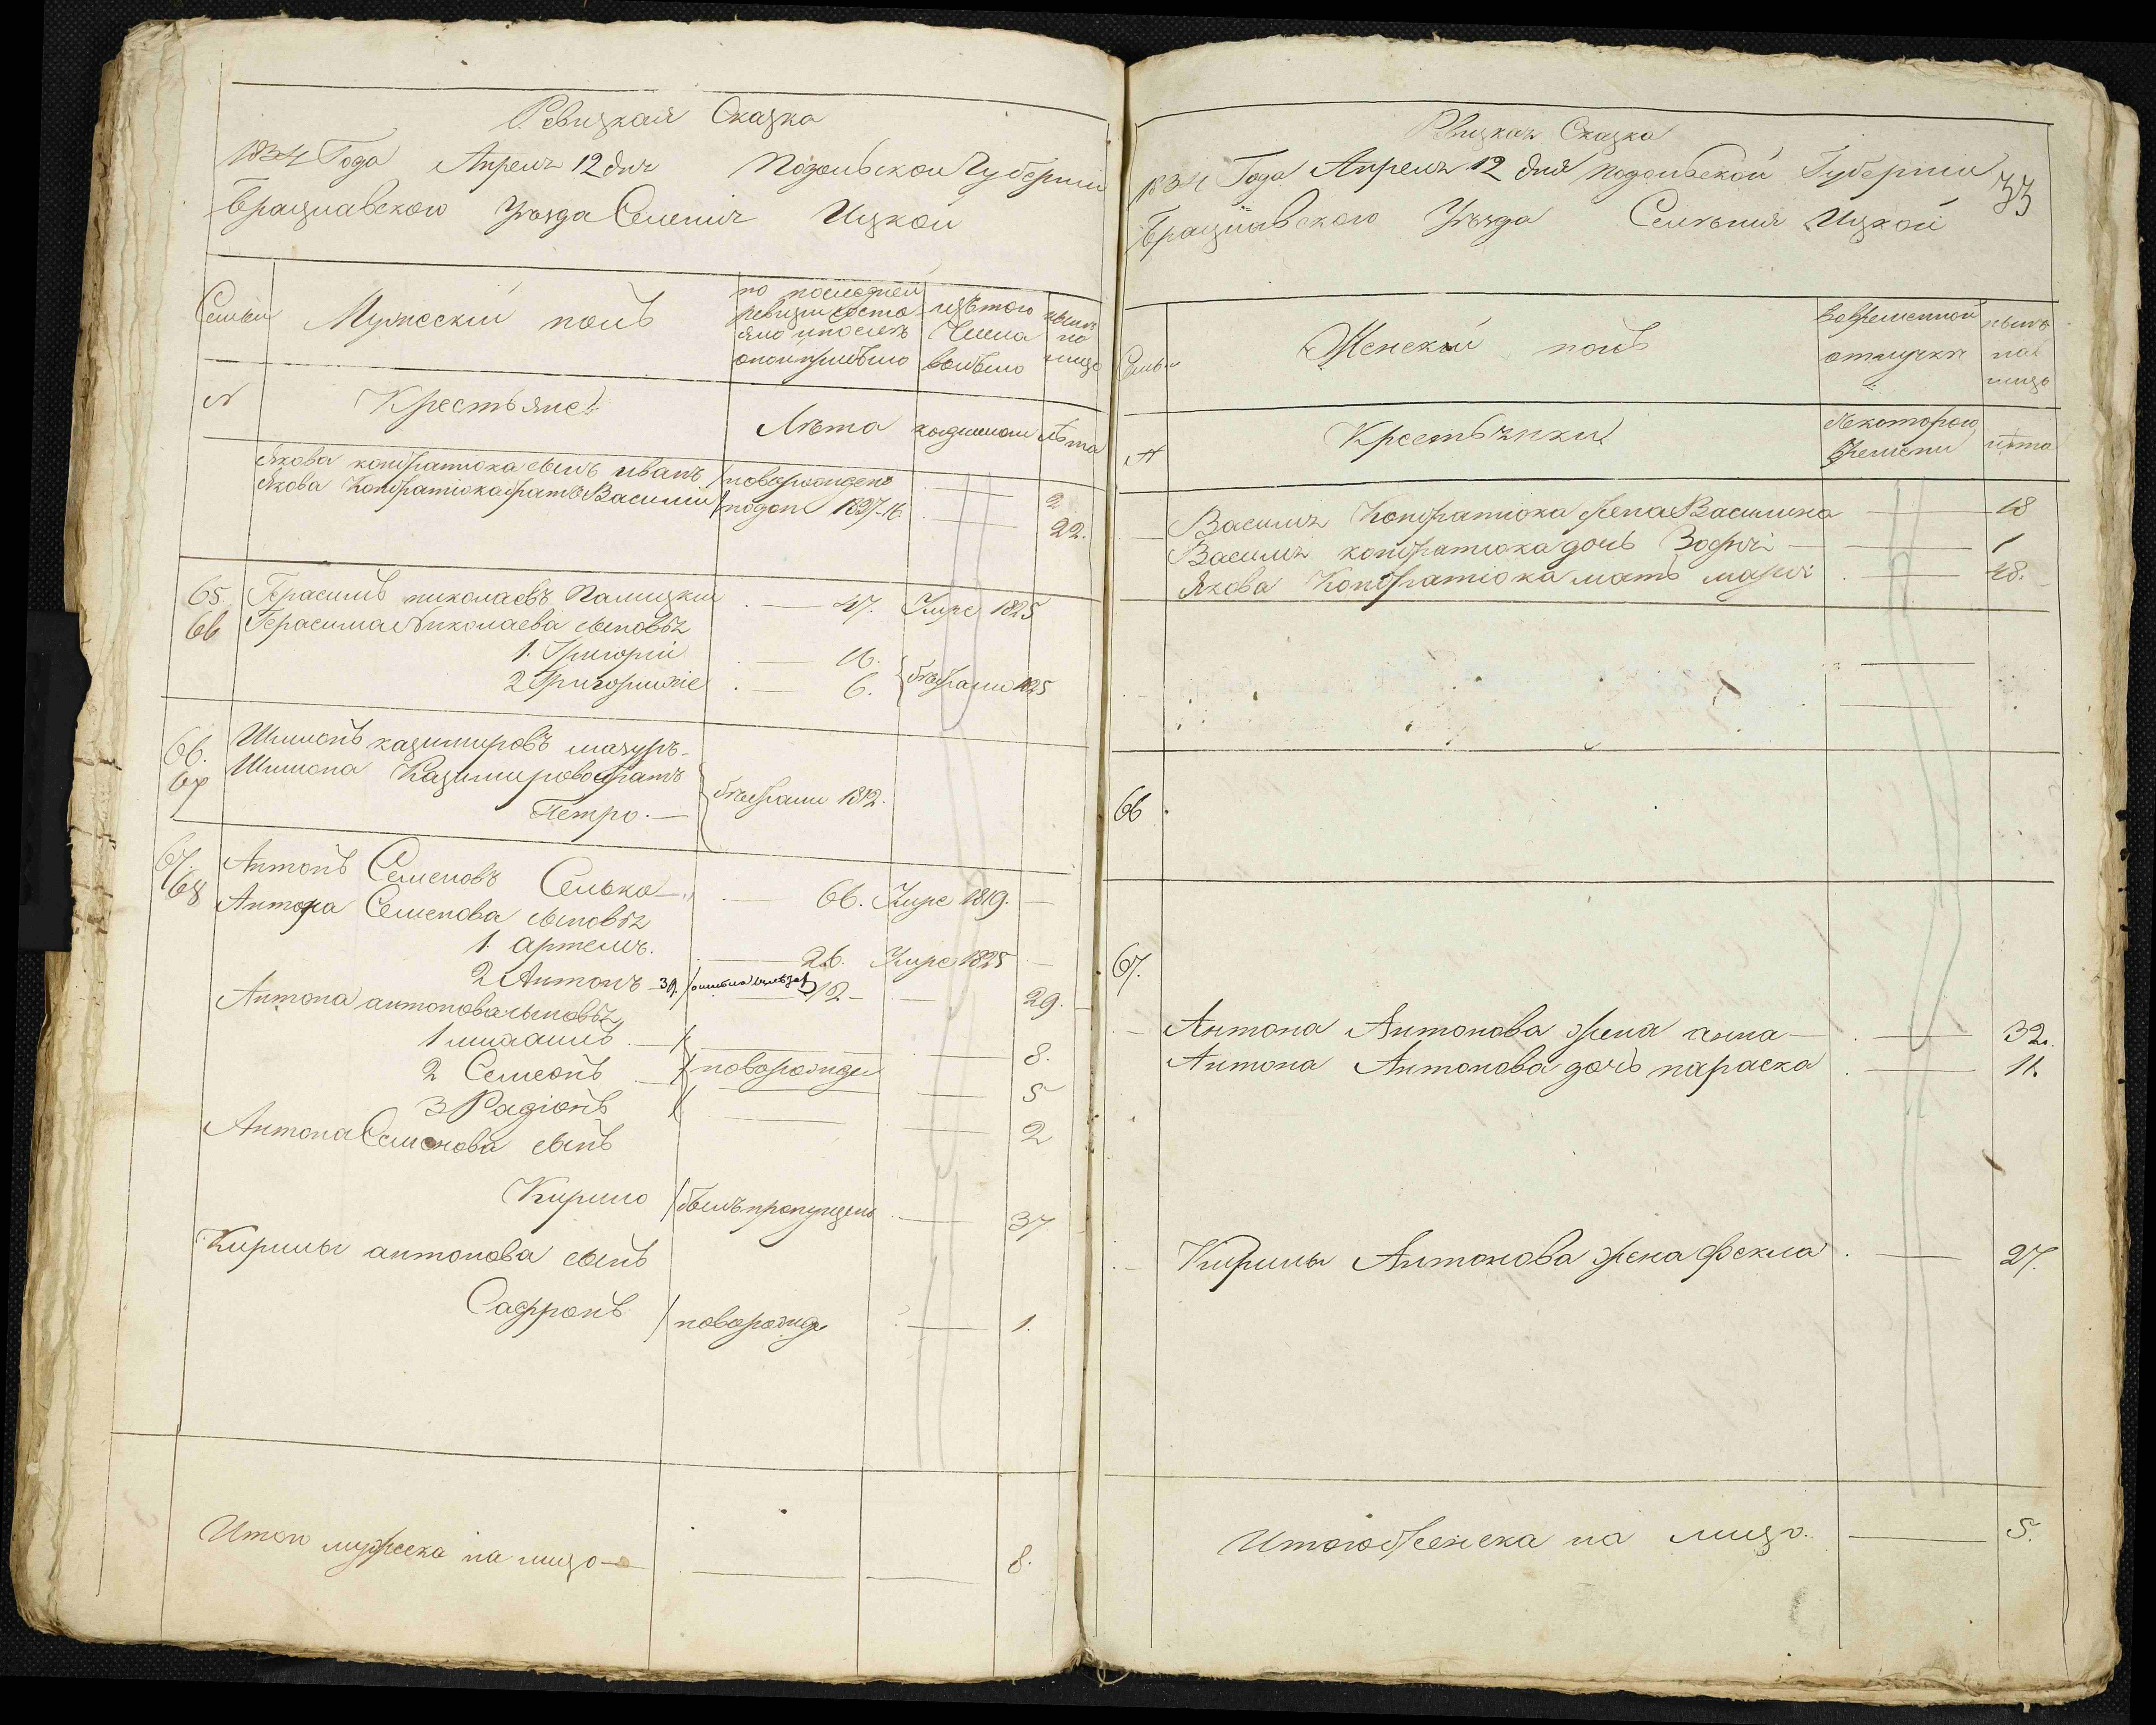 Ревизкая Сказка
1834 Года Апреля 12 дня Подольской Губернии
Брацлавского Уезда Селения Ицкой
Семьи
Мужеский полъ
по последней ревизии состояло и после оной прибыло
изътого Числа выбыло
ныне на лицо
№
Крестьяне
Лѣта
когдименно
Лѣта
Якова кондратюка сынъ иванъ новорожденъ 2
Якова Кондратюка братъ Василий подоп 1827-16 22.
65.
66
Герасимъ николаевъ Палицкий 47. Умре 1825
Герасима Николаева сыновья
1. Григорий 16.
2 Григорий же 6. бежали 1825
66.
67
Шимонъ казимировъ мазуръ
Шимона Казимирова братъ
Петро. бежали 1812.
67.
68
Антонъ Семеновъ Сенько 66. Умре 1819.
Антона Семенова сыновья
1. артемъ. 26. Умре 1825
2 Антонъ 39. 12 29.
Антона антонова сыновья
1 8.
2 Семеонъ новорожде 5
3 Радионъ 2
Антона Семенова сынъ
Кирило былъ пропущенъ 37.
Кирилы антонова сынъ
Сафронъ новорожде 1.
Итого мужеска на лицо 8.
Ревизкая Сказка
1834 Года Апреля 12 дня Подольской Губернии
33
Брацлавского Уезда Селения Ицкой
Семьи
Женский полъ
вовременной отлучки
ныне на лицо
№
Крестьянки
Скоторого Времени
лѣта
Василия Кондратюка жена Василина 18
Василия кондратюка дочь Зофия 1
Якова Кондратюка мать мария 48.
66
67.
Антона Антонова жена анна 32.
Антона Антонова дочь параска 11.
Кирилы Антонова жена фекла 27.
Итого Женска на лицо. 5.